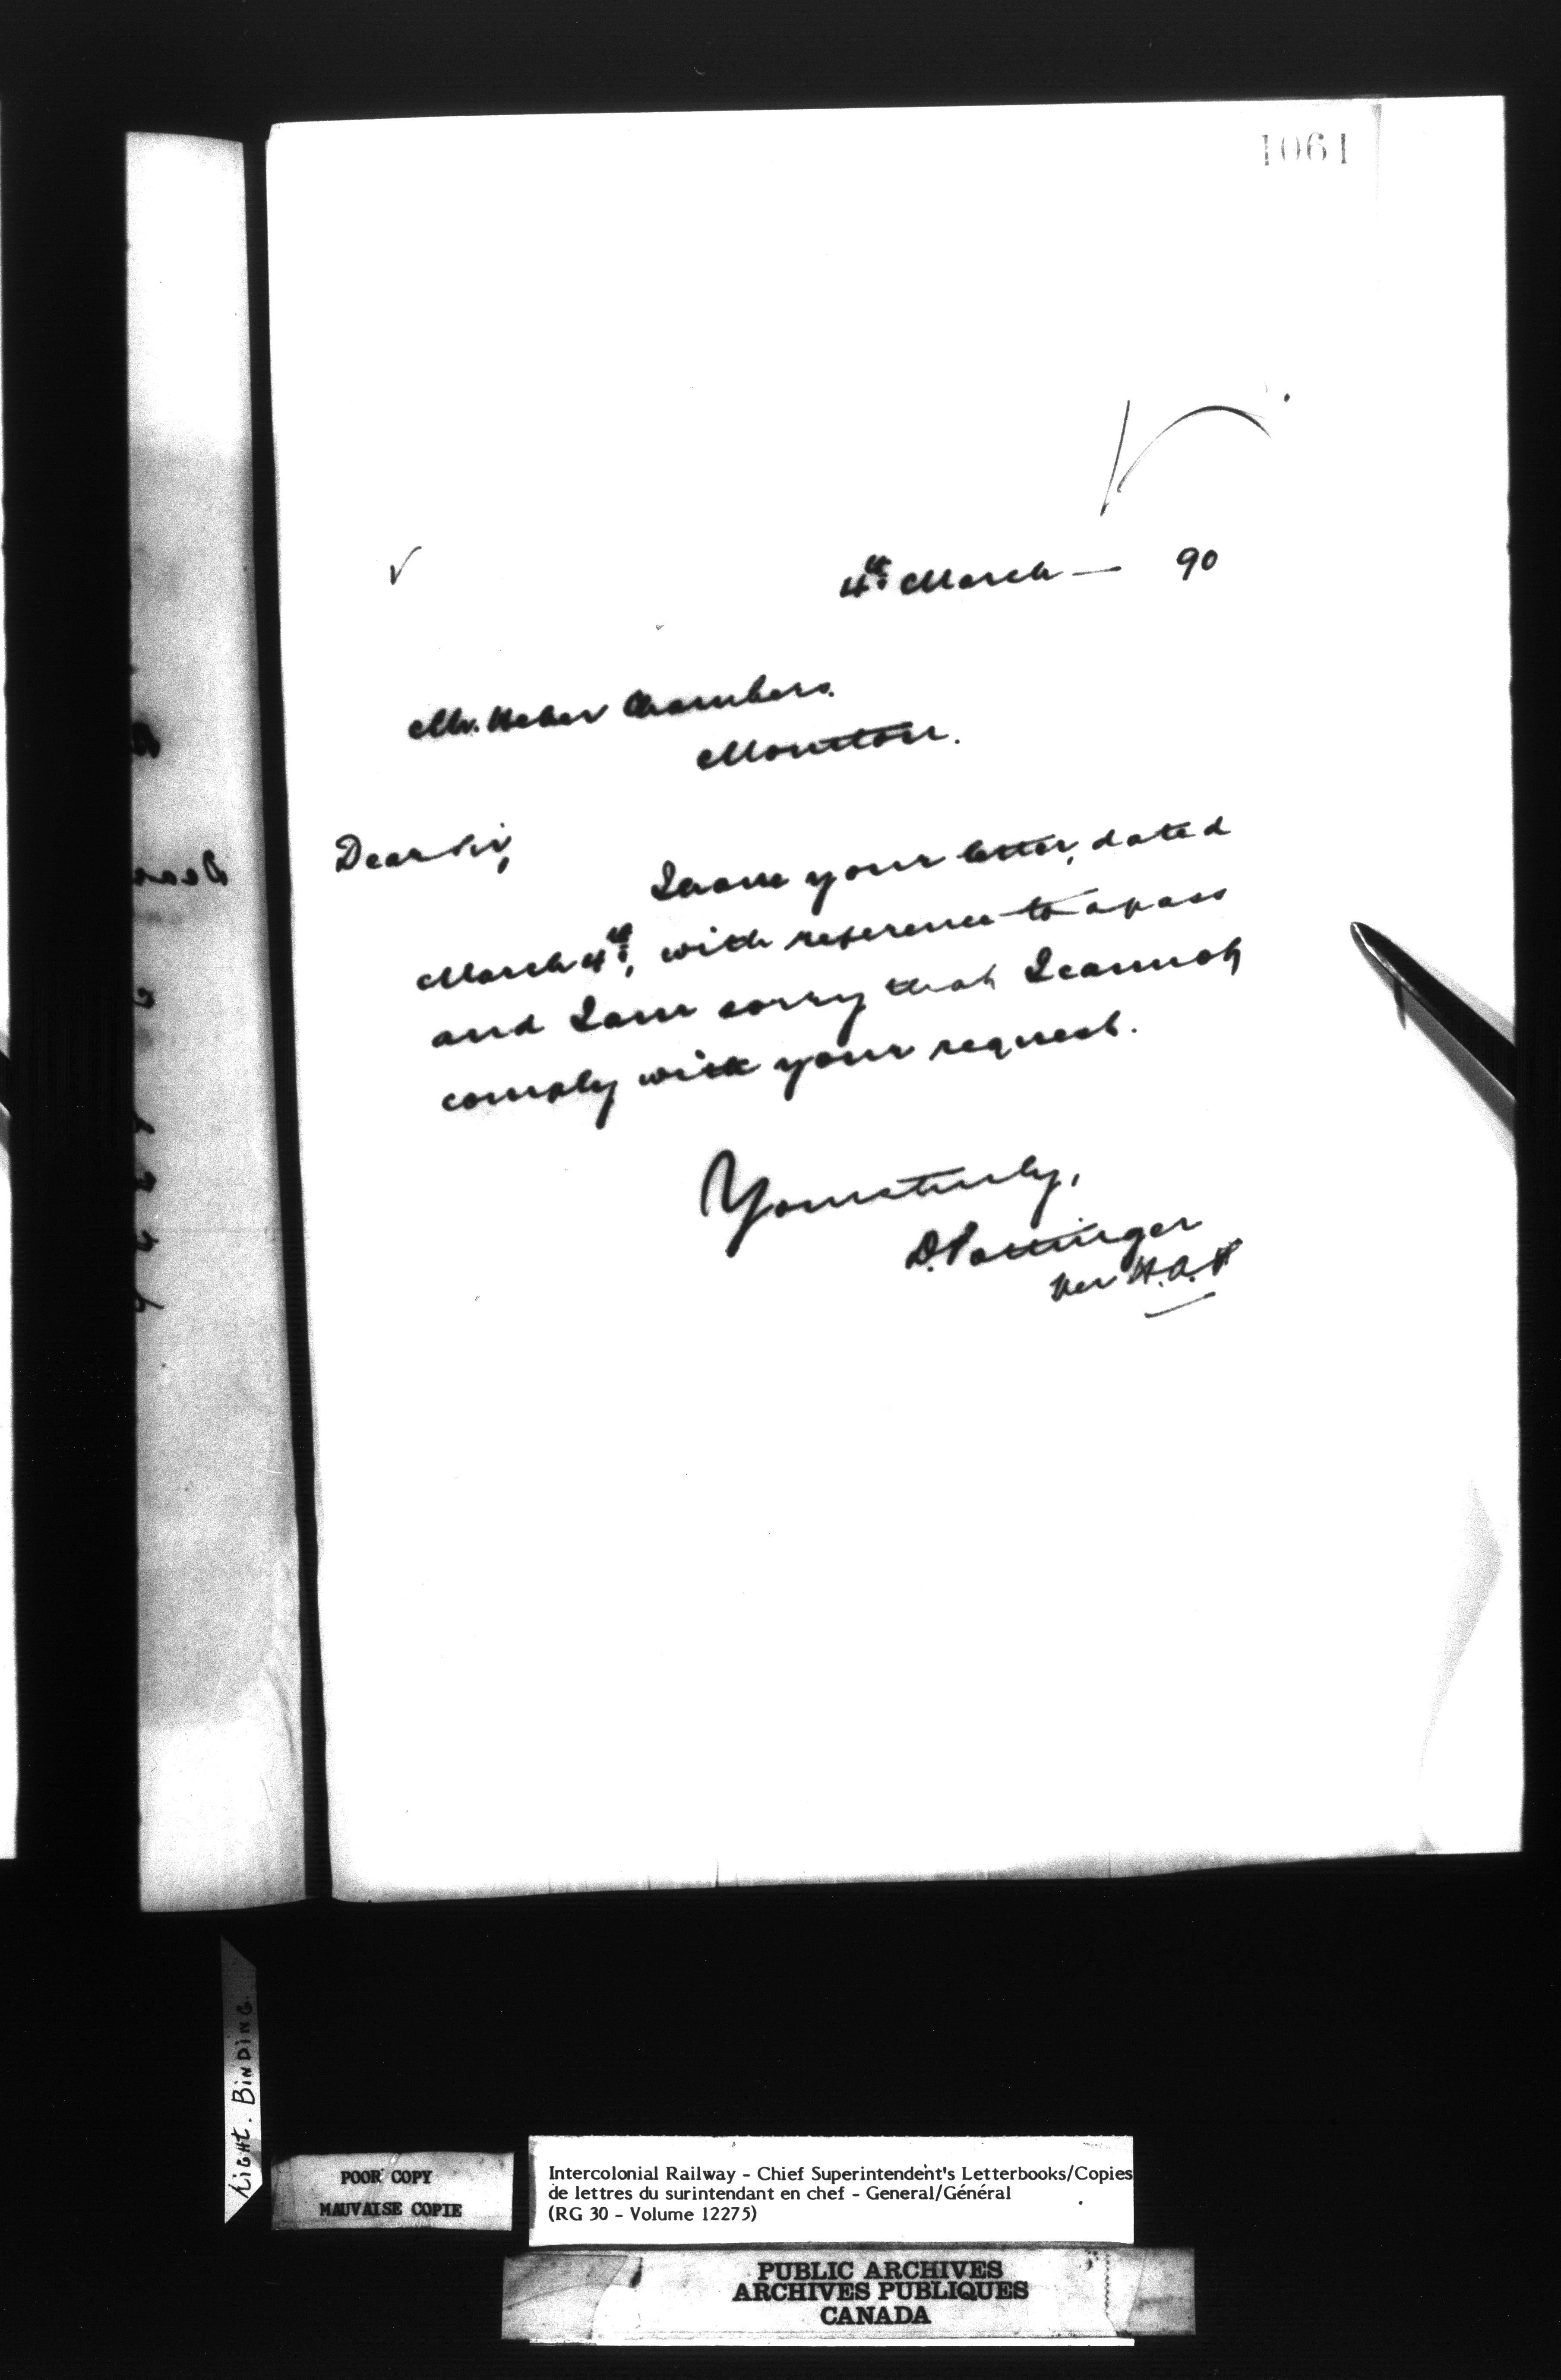 1061
4th March — 90
Mr. Heber Chambers.
Moncton.
Dear Sir,
I have your letter, dated
March 4th, with reference to a pass
and I am sorry that I cannot
comply with your request.
Yours truly,
D. Pottinger
Per H.A.P
Dear
TIGHT. BINDING.
POOR COPY
MAUVAISE COPIE
Intercolonial Railway - Chief Superintendent's Letterbooks/Copies
de lettres du surintendant en chef - General/Général
(RG 30 - Volume 12275)
PUBLIC ARCHIVES
ARCHIVES PUBLIQUES
CANADA